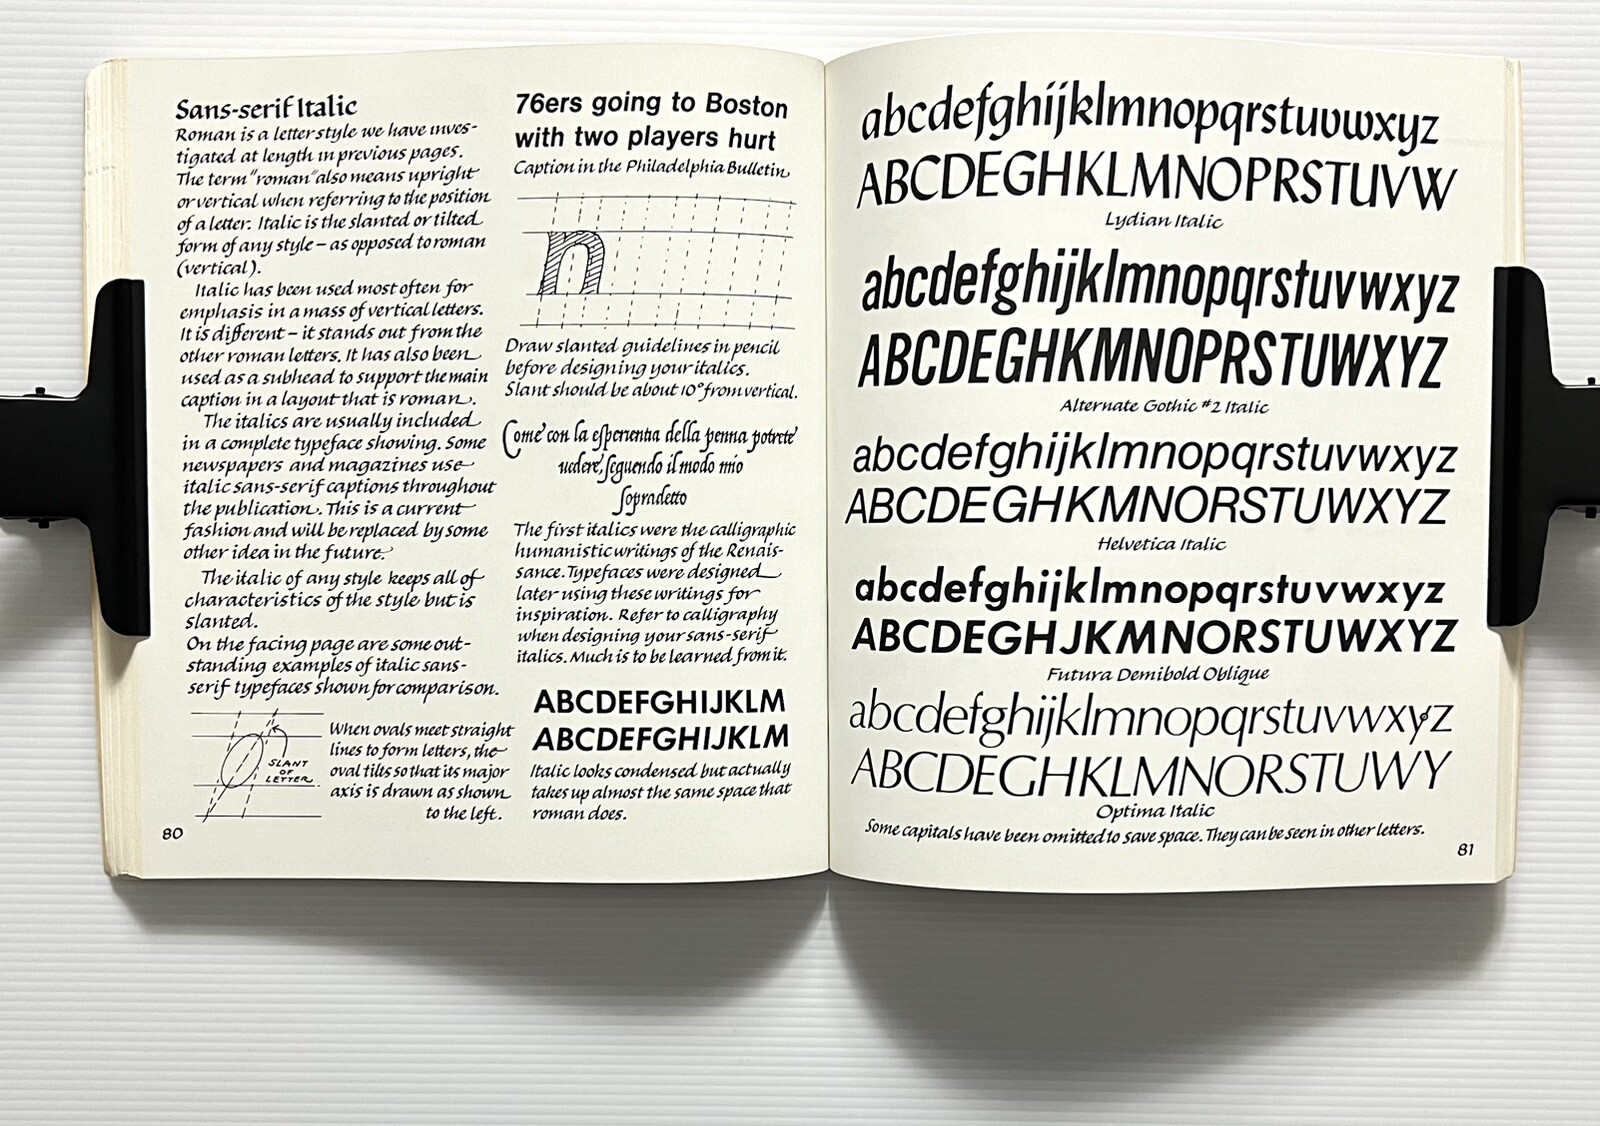 Sans-serif Italic
Roman is a letter style we have inves-
tigated at length in previous pages.
The term "roman" also means upright
or vertical when referring to the position
of a letter. Italic is the slanted or tilted
form of any style – as opposed to roman
(vertical).
Italic has been used most often for
emphasis in a mass of vertical letters.
It is different – it stands out from the
other roman letters. It has also been
used as a subhead to support the main
caption in a layout that is roman.
The italics are usually included
in a complete typeface showing. Some
newspapers and magazines use
italic sans-serif captions throughout
the publication. This is a current
fashion and will be replaced by some
other idea in the future.
The italic of any style keeps all of
characteristics of the style but is
slanted.
On the facing page are some out-
standing examples of italic sans-
serif typefaces shown for comparison.
SLANT
OF
LETTER
When ovals meet straight
lines to form letters, the
oval tilts so that its major
axis is drawn as shown
to the left.
80
76ers going to Boston
with two players hurt
Caption in the Philadelphia Bulletin
n
Draw slanted guidelines in pencil
before designing your italics.
Slant should be about 10° from vertical.
Come con la esperientia della penna potrete
vedere, seguendo il modo mio
sopradetto
The first italics were the calligraphic
humanistic writings of the Renais-
sance. Typefaces were designed
later using these writings for
inspiration. Refer to calligraphy
when designing your sans-serif
italics. Much is to be learned from it.
ABCDEFGHIJKLM
ABCDEFGHIJKLM
Italic looks condensed but actually
takes up almost the same space that
roman does.
abcdefghijklmnopqrstuvwxyz
ABCDEGHKLMNOPRSTUVW
Lydian Italic
abcdefghijklmnopqrstuvwxyz
ABCDEGHKMNOPRSTUWXYZ
Alternate Gothic #2 Italic
abcdefghijklmnopqrstuvwxyz
ABCDEGHKMNORSTUWXYZ
Helvetica Italic
abcdefghijklmnopqrstuvwxyz
ABCDEGHJKMNORSTUWXYZ
Futura Demibold Oblique
abcdefghijklmnopqrstuvwxyz
ABCDEGHKLMNORSTUWY
Optima Italic
Some capitals have been omitted to save space. They can be seen in other letters.
81